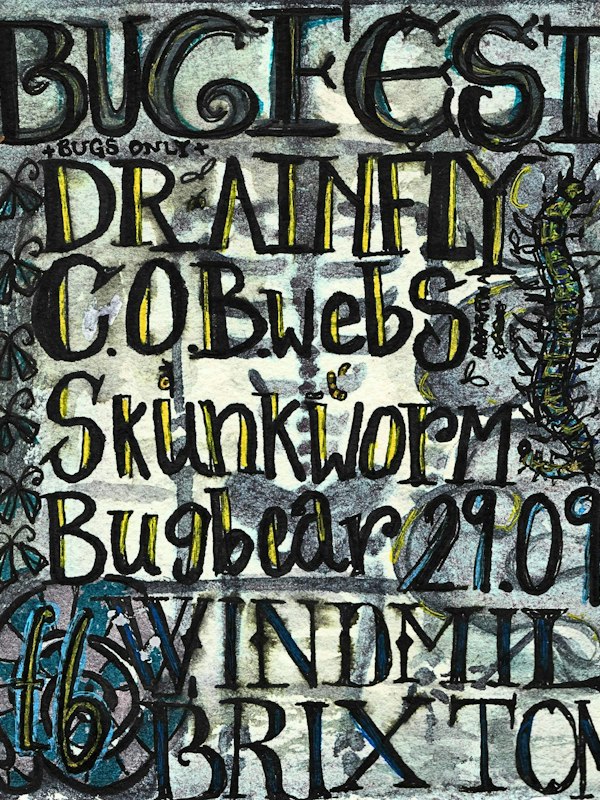 BUGFEST
+BUGS ONLY+
DRAINFLY
C.O.B.webS
Skunkworm
Bugbear 29.09
£6 WINDMIL
BRIXTON